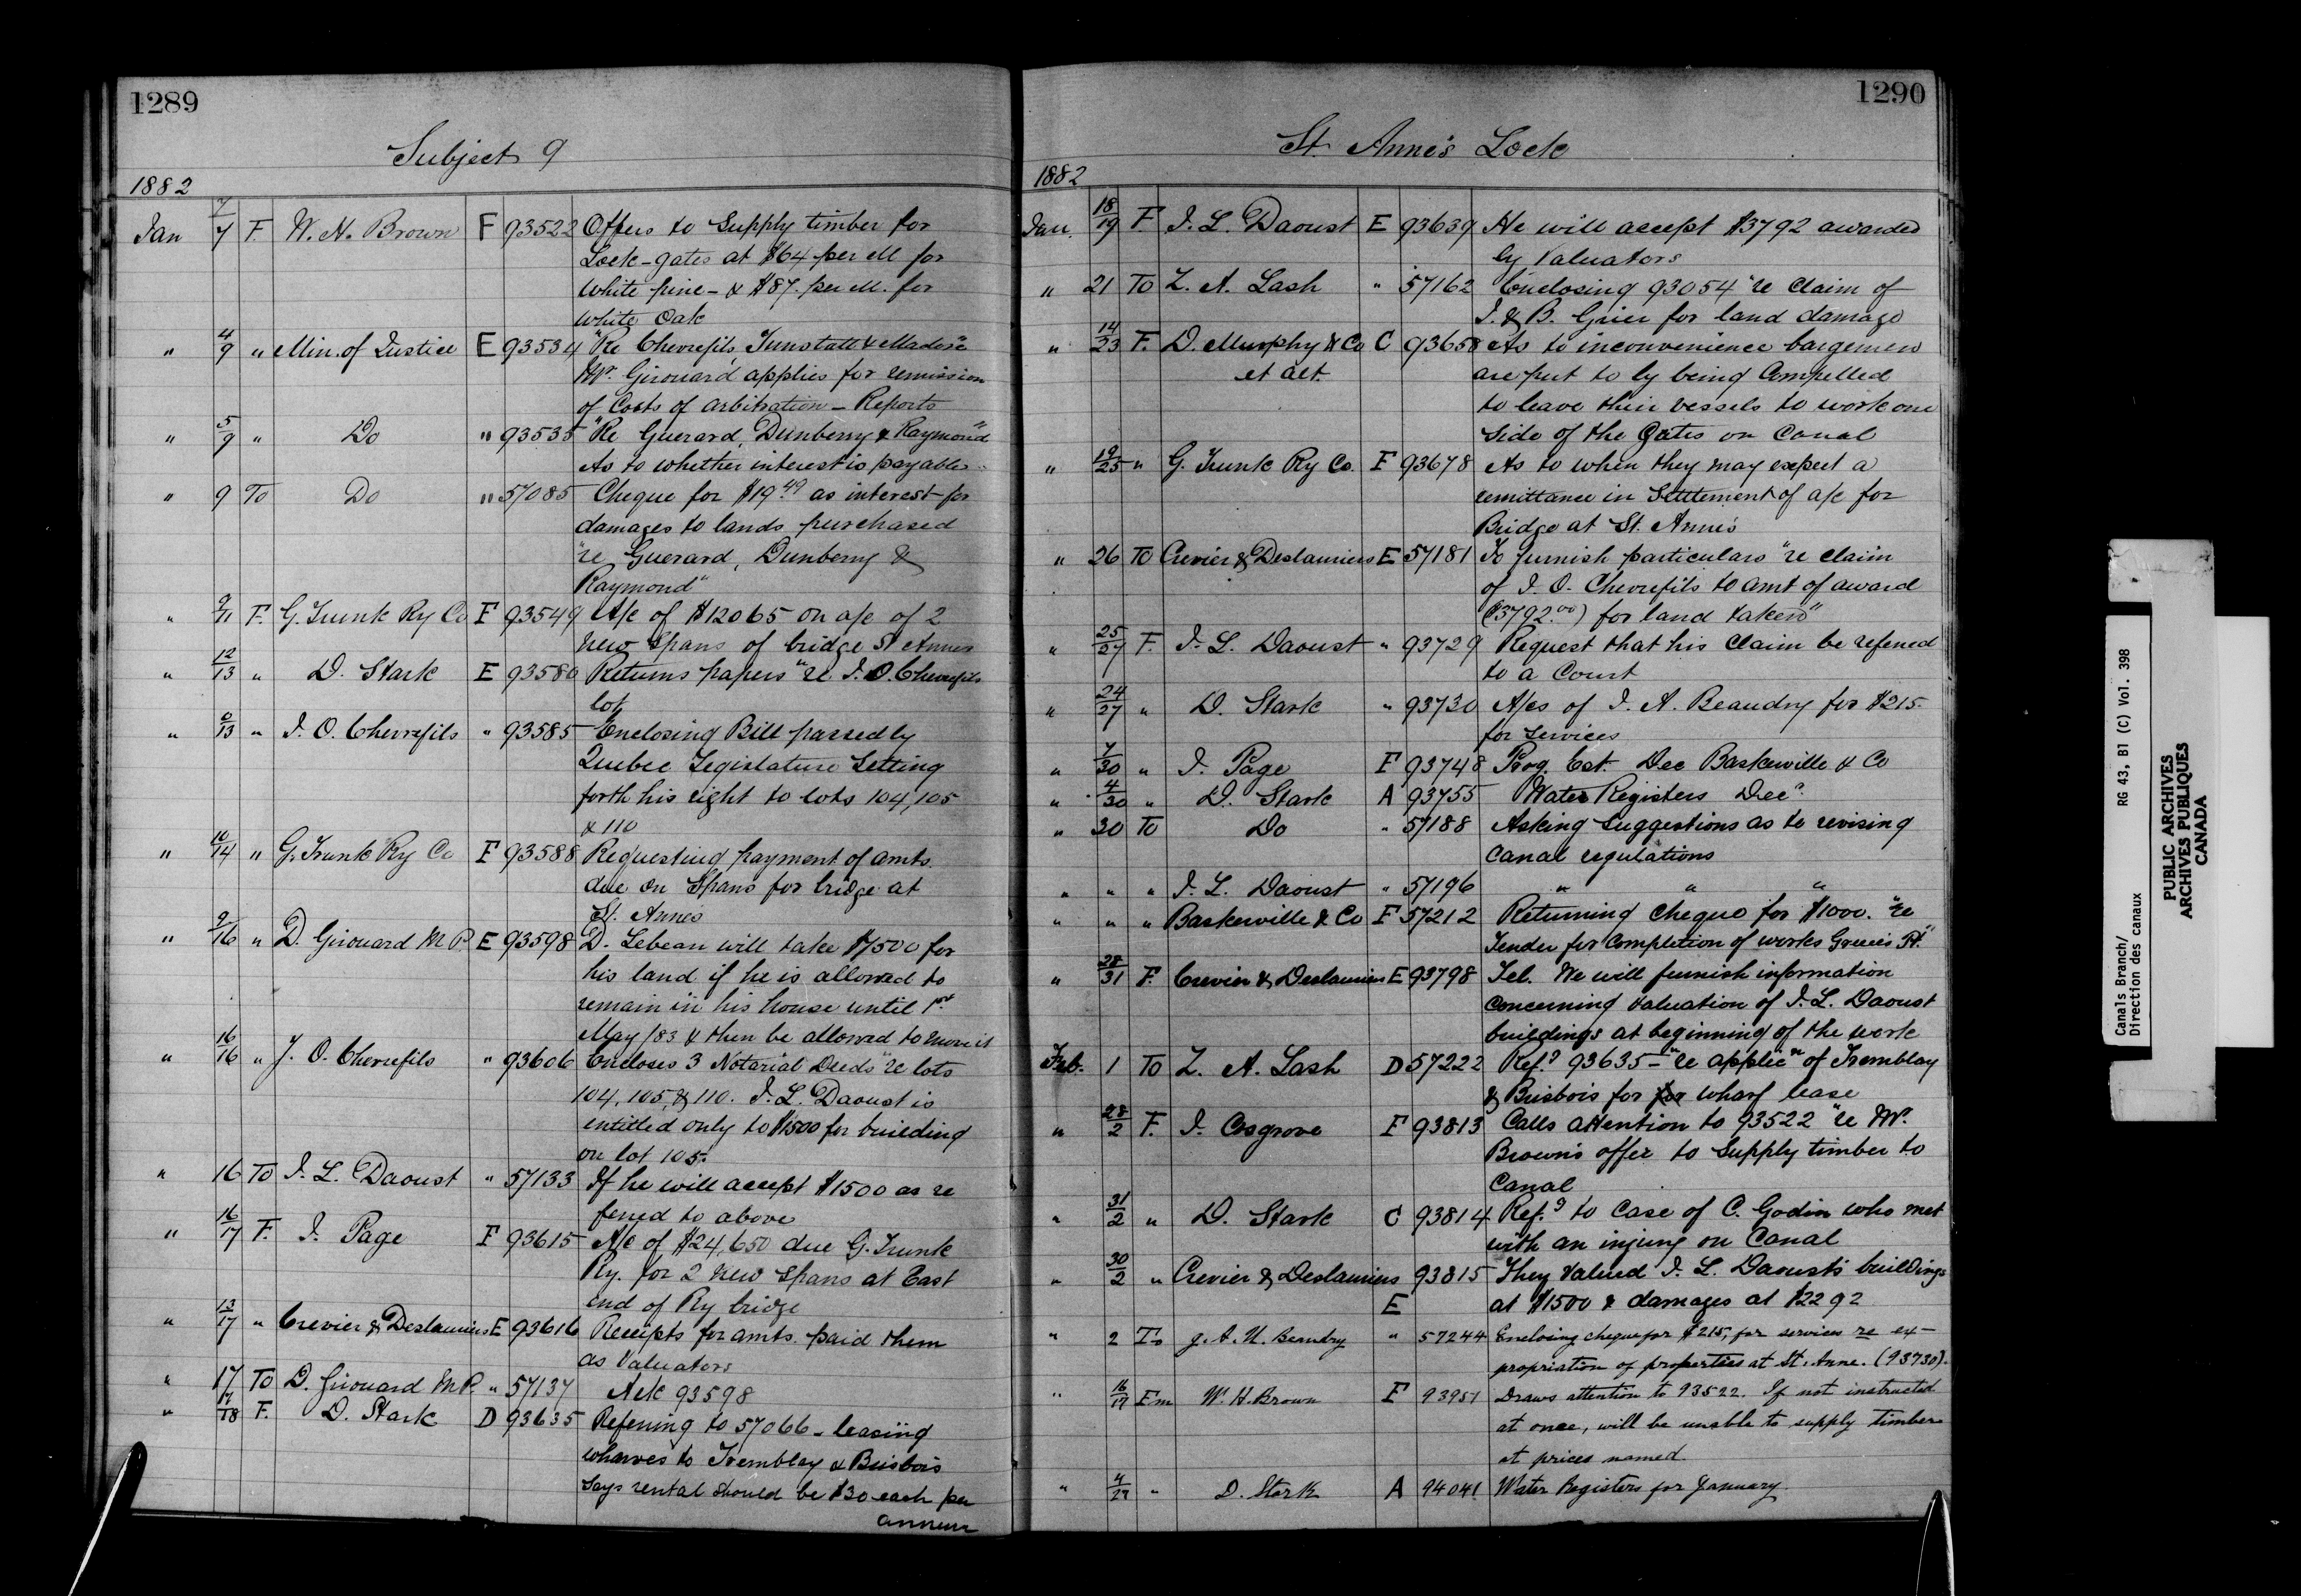 1289
Subject 9
1882
Jan 7/7 F. W. H. Brown F 93522 Offers to Supply timber for
Lock-gates at $64 per M for
White pine - & $87. per M. for
White Oak
" 4/9 " Min. of Justice E 93534 "Re Chevrefils, Tunstall & Madore"
Mr. Girouard applies for remission
of Costs of arbitration - Reports
" 5/9 " Do " 93535 "Re Guerard, Dunberry & Raymond"
As to whether interest is payable
" 9 To Do " 57085 Cheque for $19.49 as interest for
damages to lands purchased
"re Guerard, Dunberry &
Raymond"
" 9/11 F. G. Trunk Ry Co F 93549 A/c of $12065 on a/c of 2
new Spans of bridge St Annes
" 12/13 " D. Stark E 93580 Returns papers "re J. O. Chevrefils
lot
" 6/13 " J. O. Chevrefils " 93585 Enclosing Bill passed by
Quebec Legislature Setting
forth his right to lots 104, 105
& 110
" 10/14 " G. Trunk Ry Co F 93588 Requesting payment of amts.
due on Spans for bridge at
St. Anne's
" 9/16 " D. Girouard M.P. E 93598 D. Lebeau will take $7500 for
his land if he is allowed to
remain in his house until 1st
May /83 & then be allowed to move it
" 16/16 " J. O. Chevrefils " 93606 Encloses 3 Notarial Deeds "re lots
104, 105, & 110. J. L. Daoust is
entitled only to $1500 for building
on lot 105.
" 16 To J. L. Daoust " 57133 If he will accept $1500 as re
ferred to above
" 16/17 F. J. Page F 93615 A/c of $24,650 due G. Trunk
Ry. for 2 new Spans at East
end of Ry bridge
" 13/17 " Crevier & Deslauriers E 93616 Receipts for amts. paid them
as Valuators
" 17 To D. Girouard M.P. " 57137 Ack 93598
" 17/18 F. D. Stark D 93635 Referring to 57066 - leasing
wharves to Tremblay & Brisbois
Says rental should be $30 each per
annum
1290
St. Anne's Lock
1882
Jan. 18/19 F J. L. Daoust E 93639 He will accept $3792 awarded
by Valuators
" 21 To Z. A. Lash " 57162 Enclosing 93054 "re Claim of
J. & B. Grier for land damage
" 14/23 F. D. Murphy & Co C 93658 As to inconvenience bargemen
et alt. are put to by being Compelled
to leave their vessels to work one
side of the Gates on Canal
" 19/25 " G. Trunk Ry Co. F 93678 As to when they may expect a
remittance in Settlement of a/c for
Bridge at St. Anne's
" 26 To Crevier & Deslauriers E 57181 To furnish particulars "re claim
of J. O. Chevrefils to amt of award
($3792.00) for land taken"
" 25/27 F. J. L. Daoust " 93729 Request that his Claim be referred
to a Court
" 24/27 " D. Stark " 93730 A/cs of J. A. Beaudry for $215.
for services
" 7/30 " J. Page F 93748 Prog. Est. Dec Baskerville & Co
" 4/30 " D. Stark A 93755 Water Registers Decr
" 30 To Do " 57188 Asking Suggestions as to revising
Canal regulations
" " " J. L. Daoust " 57196 " " "
" " " Baskerville & Co F 57212 Returning cheque for $1000. "re
Tender for completion of works Greece's Pt."
" 28/31 F. Crevier & Deslauriers E 93798 Tel. We will furnish information
concerning valuation of J. L. Daoust
buildings at beginning of the work
Feb. 1 To Z. A. Lash D 57222 Refg 93635 - "re applicn of Tremblay
& Brisbois for for wharf lease
" 28/2 F. J. Cosgrove F 93813 Calls attention to 93522 "re Mr.
Brown's offer to Supply timber to
Canal
" 31/2 " D. Stark C 93814 Refg to Case of C. Godin who met
with an injury on Canal
" 30/2 " Crevier & Deslauriers 93815 They Valued J. L. Daoust's buildings
E at $1500 & damages at $2292
" 2 To J. A. U. Beaudry " 57244 Enclosing cheque for $215, for services re ex-
propriation of properties at St. Anne. (93730).
" 16/17 Fm W. H. Brown F 93951 Draws attention to 93522. If not instructed
at once, will be unable to supply timber
at prices named.
" 4/27 " D. Stark A 94041 Water Registers for January
Canals Branch/ RG 43, B1 (C) Vol. 398
Direction des canaux
PUBLIC ARCHIVES
ARCHIVES PUBLIQUES
CANADA